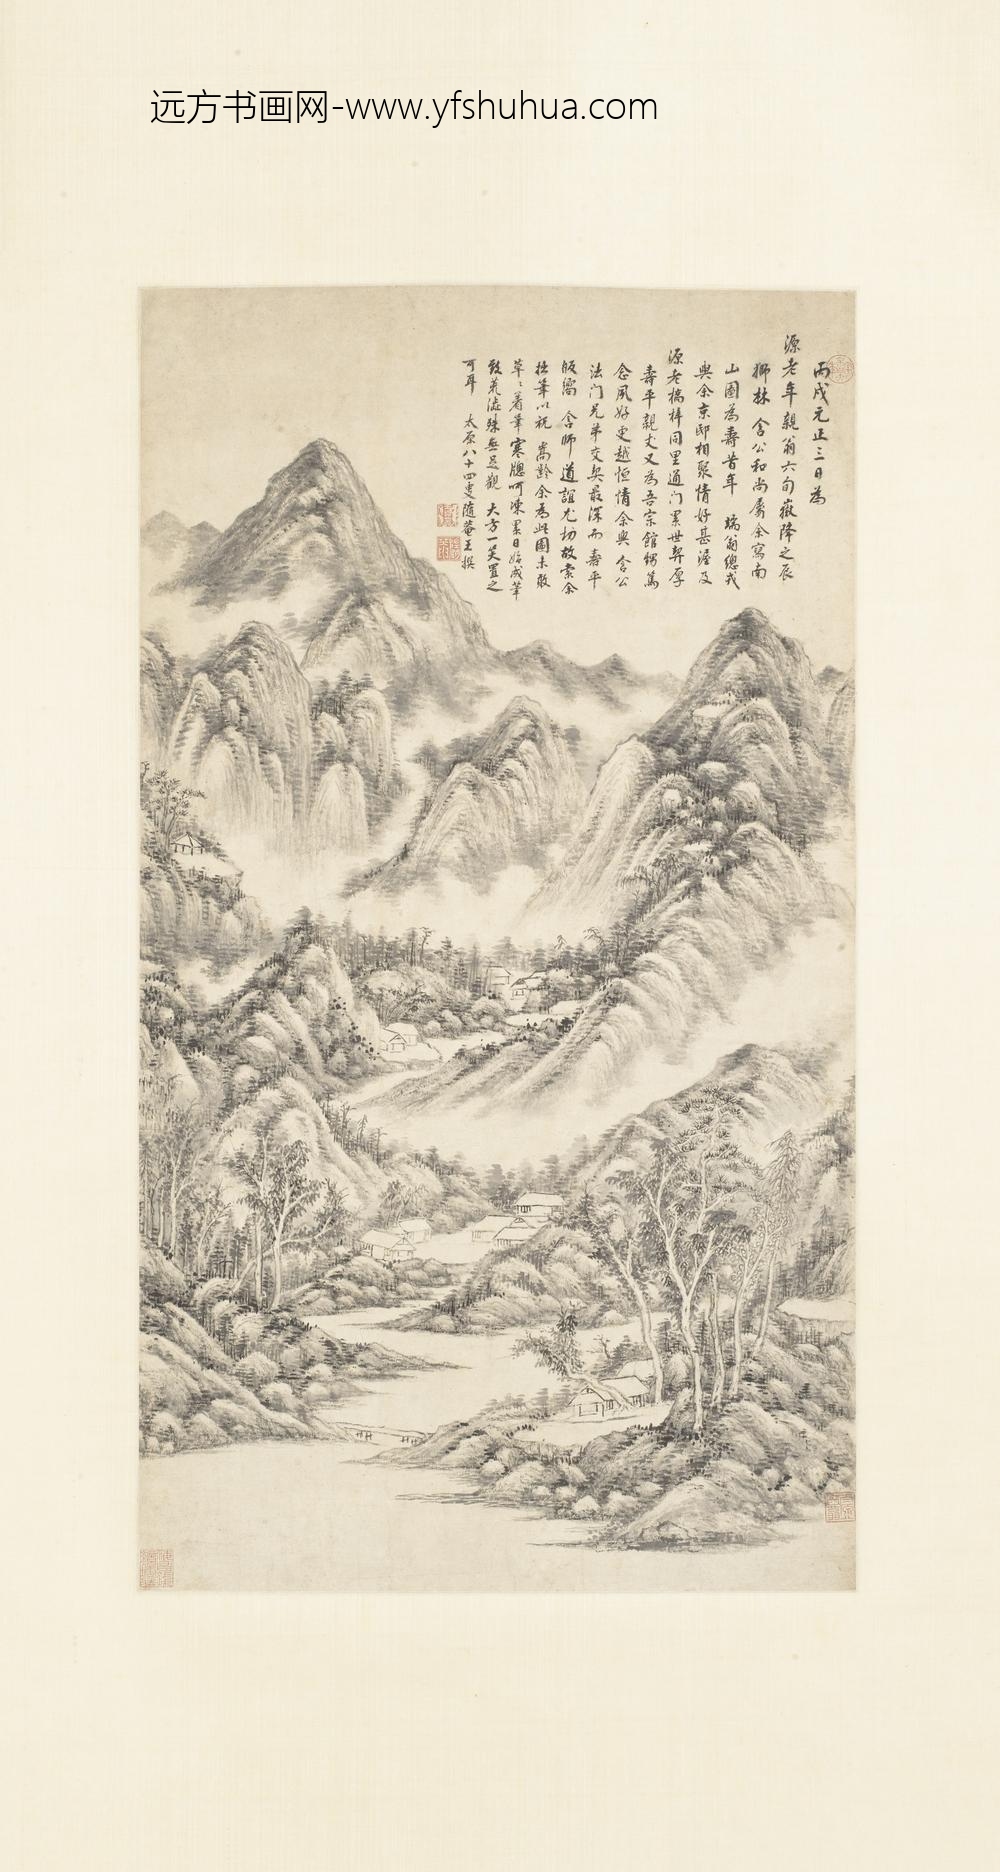 远方书画网-www.yfshuhua.com
丙戌元正三日為
源老年親翁六旬嶽降之辰
獅林 含公和尚屬余寫南
山圖為壽昔年 瑞翁總戎
與余京邸相聚情好甚渥及
源老橋梓同里通門累世契厚
壽平親丈又為吾宗館甥篤
念夙好更越恒情余與 含公
法门兄弟交契最深而 壽平
皈嚮 含師道誼尤切故索余
拙筆以祝 嵩齡余為此圖未敢
草草着筆寒牕呵凍累日始成筆
致荒澁殊無足觀 大方一笑置之
可耳 太原八十四叟隨菴王撰